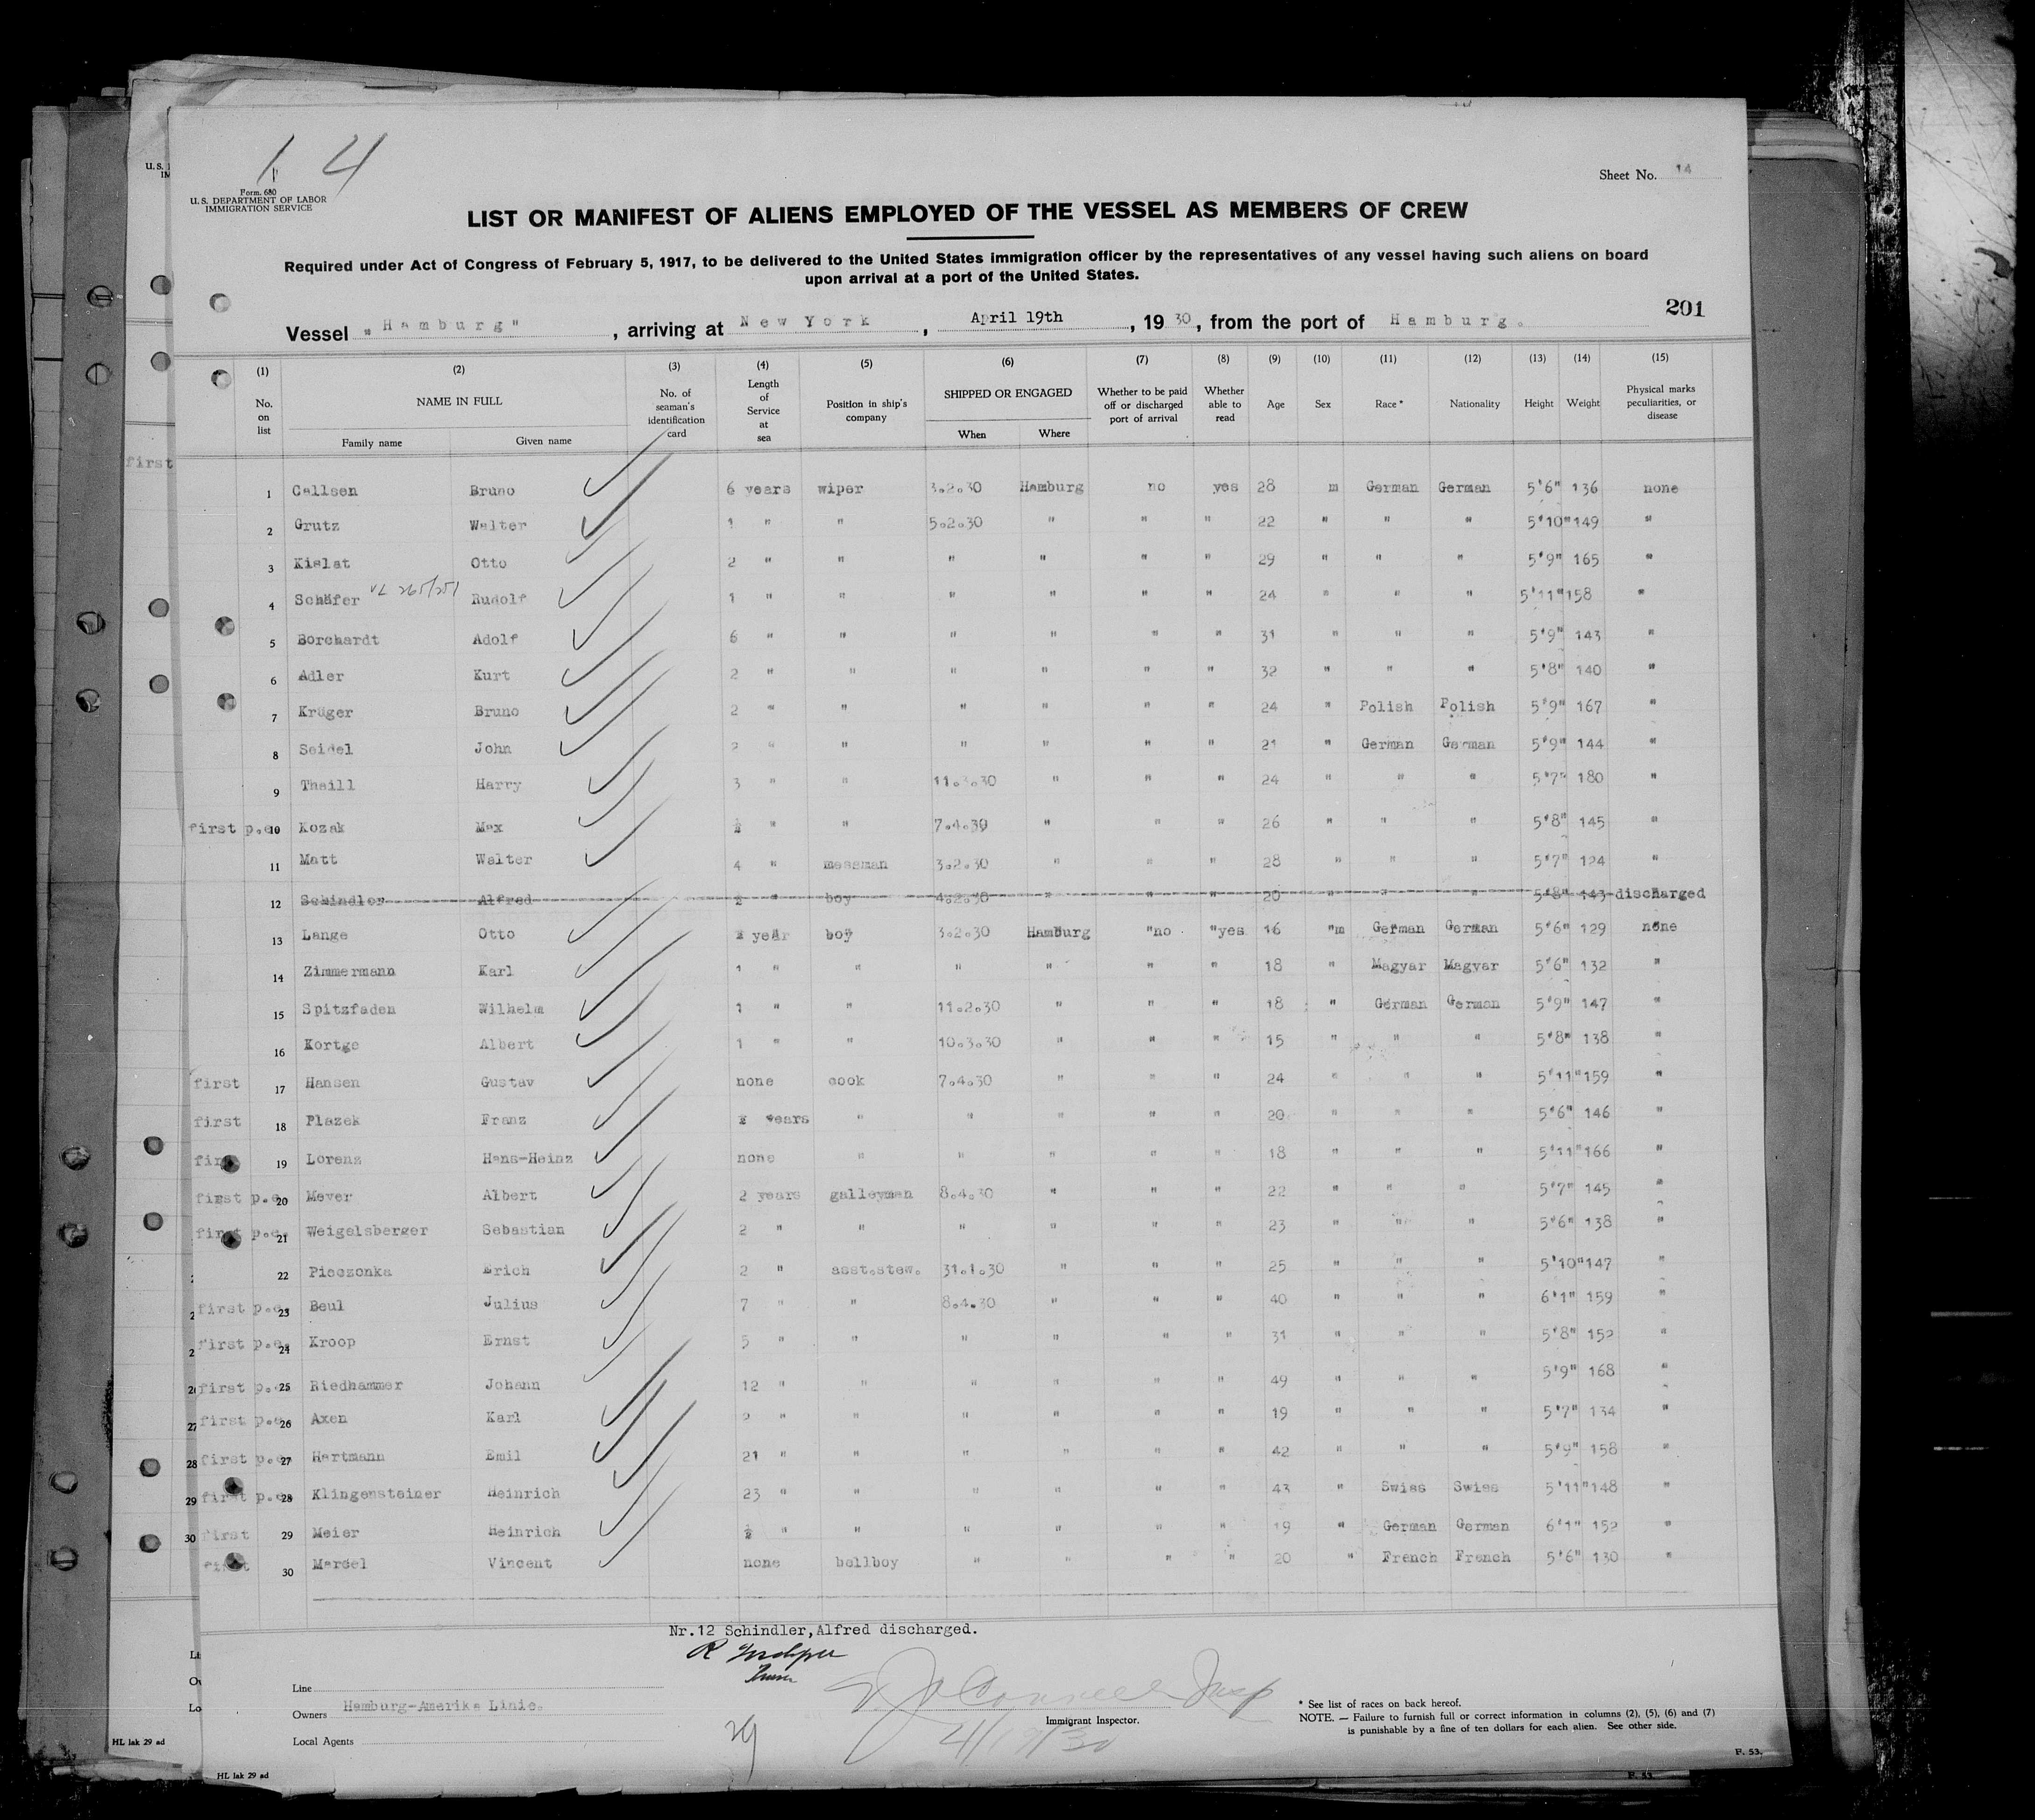 1 4
Form. 680
U. S. DEPARTMENT OF LABOR
IMMIGRATION SERVICE
Sheet No. 14
LIST OR MANIFEST OF ALIENS EMPLOYED OF THE VESSEL AS MEMBERS OF CREW
Required under Act of Congress of February 5, 1917, to be delivered to the United States immigration officer by the representatives of any vessel having such aliens on board
upon arrival at a port of the United States.
201
Vessel „Hamburg" , arriving at New York , April 19th , 1930, from the port of Hamburg.
(1) (2) (3) (4) (5) (6) (7) (8) (9) (10) (11) (12) (13) (14) (15)
No. on list NAME IN FULL Family name Given name No. of seaman's identification card Length of Service at sea Position in ship's company SHIPPED OR ENGAGED When Where Whether to be paid off or discharged port of arrival Whether able to read Age Sex Race * Nationality Height Weight Physical marks peculiarities, or disease
first
1 Callsen Bruno 6 years wiper 3.2.30 Hamburg no yes 28 m German German 5'6" 136 none
2 Grutz Walter 1 " " 5.2.30 " " " 22 " " " 5'10" 149 "
3 Kislat Otto 2 " " " " " " 29 " " " 5'9" 165 "
4 Schäfer Rudolf 1 " " " " " " 24 " " " 5'11" 158 "
5 Borchardt Adolf 6 " " " " " " 31 " " " 5'9" 143 "
6 Adler Kurt 2 " " " " " " 32 " " " 5'8" 140 "
7 Krüger Bruno 2 " " " " " " 24 " Polish Polish 5'9" 167 "
8 Seidel John 2 " " " " " " 21 " German German 5'9" 144 "
9 Thaill Harry 3 " " 11.3.30 " " " 24 " " " 5'7" 180 "
first p.e. 10 Kozak Max ½ " " 7.4.30 " " " 26 " " " 5'8" 145 "
11 Matt Walter 4 " messman 3.2.30 " " " 28 " " " 5'7" 124 "
12 Schindler Alfred ½ " boy 4.2.30 " " " 20 " " " 5'8" 143 discharged
13 Lange Otto ½ year boy 3.2.30 Hamburg "no "yes 16 "m German German 5'6" 129 none
14 Zimmermann Karl 1 " " " " " " 18 " Magyar Magyar 5'6" 132 "
15 Spitzfaden Wilhelm 1 " " 11.2.30 " " " 18 " German German 5'9" 147 "
16 Kortge Albert 1 " " 10.3.30 " " " 15 " " " 5'8" 138 "
first 17 Hansen Gustav none cook 7.4.30 " " " 24 " " " 5'11" 159 "
first 18 Plazek Franz ½ years " " " " " 20 " " " 5'6" 146 "
first 19 Lorenz Hans-Heinz none " " " " " 18 " " " 5'11" 166 "
first p.e. 20 Meyer Albert 2 years galleyman 8.4.30 " " " 22 " " " 5'7" 145 "
first p.e. 21 Weigelsberger Sebastian 2 " " " " " " 23 " " " 5'6" 138 "
22 Pieczonka Erich 2 " asst.stew. 31.1.30 " " " 25 " " " 5'10" 147 "
first p.e. 23 Beul Julius 7 " " 8.4.30 " " " 40 " " " 6'1" 159 "
first p.e. 24 Kroop Ernst 5 " " " " " " 31 " " " 5'8" 152 "
first p.e. 25 Riedhammer Johann 12 " " " " " " 49 " " " 5'9" 168 "
27 first p.e. 26 Axen Karl 2 " " " " " " 19 " " " 5'7" 134 "
28 first p.e. 27 Hartmann Emil 21 " " " " " " 42 " " " 5'9" 158 "
29 first p.e. 28 Klingensteiner Heinrich 23 " " " " " " 43 " Swiss Swiss 5'11" 148 "
30 first 29 Meier Heinrich ½ " " " " " " 19 " German German 6'1" 152 "
first 30 Mardel Vincent none bellboy " " " " 20 " French French 5'6" 130 "
Nr.12 Schindler,Alfred discharged.
Line
Owners Hamburg-Amerika Linie.
Local Agents
Immigrant Inspector.
4/19/30
* See list of races on back hereof.
NOTE. — Failure to furnish full or correct information in columns (2), (5), (6) and (7)
is punishable by a fine of ten dollars for each alien. See other side.
F. 53.
HL lak 29 ad
HL lak 29 ad
F. 53